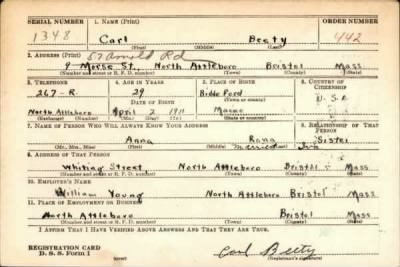 SERIAL NUMBER 1. NAME (Print) ORDER NUMBER
1348 Carl Beety 442
(First) (Middle) (Last)
2. ADDRESS (Print) 57 Arnold Rd
9 Morse St. North Attleboro Bristol Mass
(Number and street or R. F. D. number) (Town) (County) (State)
3. TELEPHONE 4. AGE IN YEARS 5. PLACE OF BIRTH 6. COUNTRY OF CITIZENSHIP
267-R. 29 Bidde Ford
DATE OF BIRTH (Town or county) U.S.A
North Attleboro April 2 1911 Maine
(Exchange) (Mo.) (Day) (Yr.) (State or country)
7. NAME OF PERSON WHO WILL ALWAYS KNOW YOUR ADDRESS 8. RELATIONSHIP OF THAT PERSON
Anna Sister
(Mr., Mrs., Miss) (First) (Middle) married (Last)
9. ADDRESS OF THAT PERSON
Whiting Street North Attleboro Bristol Mass
(Number and street or R. F. D. number) (Town) (County) (State)
10. EMPLOYER'S NAME
William Young North Attleboro Bristol Mass
11. PLACE OF EMPLOYMENT OR BUSINESS
North Attleboro Bristol Mass
(Number and street or R. F. D. number) (Town) (County) (State)
I AFFIRM THAT I HAVE VERIFIED ABOVE ANSWERS AND THAT THEY ARE TRUE.
REGISTRATION CARD
D. S. S. Form 1 Carl Beety
(over) (Registrant's signature)